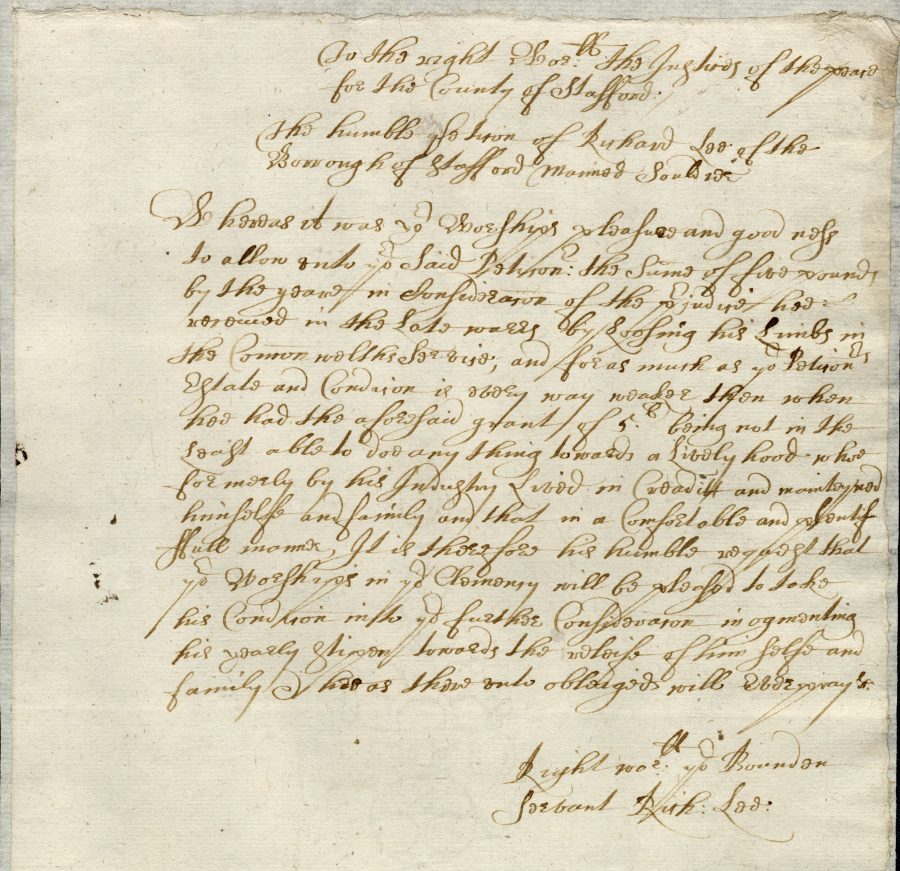 To the right Worll: the Justices of the peace
for the County of Stafford:
The humble petition of Richard Lee of the
Borrough of Stafford Maimed Souldier
Whereas it was yor Worships pleasure and goodness
to allow unto yor Said Peticonr: the Sume of five pounds
by the yeare in Consideracon of the prjudice hee
received in the Late warrs by Loosing his Limbs in
the Comon welths Servise, and foras much as yor Peticonrs
Estate and Condicon is every way weaker then when
hee had the aforesaid grant of 5li being not in the
Least able to doe any thing towards a Lively hood who
formerly by his Industry Lived in Creaditt and mainteyned
himselfe and family and that in a Comfortable and plentif
ffull manner, It is therefore his humble request that
yor Worships in yor Clemency will be pleased to take
his Condicon into yor further Consideracon in ogmenting
his yearly Stipen towards the releife of him selfe and
family & hee as there unto obleiged will Ever pray &c.
Right worll: yor Bounden
Servant Rich: Lee: